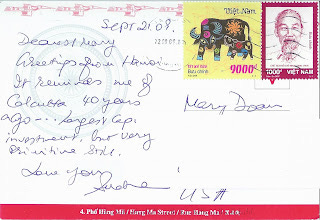 Sept 21.09.
Dearest Mary
Greetings from Hanoi -
It reminds me of
Calcutta 40 years
ago - largest cap.
investment, but very
primitive still.
Love you
Mary Doan
USA
Việt Nam
Bưu chính
9000đ
1000đ VIỆT NAM
4. Phố Hàng Mã / Hang Ma Street / Rue Hang Ma